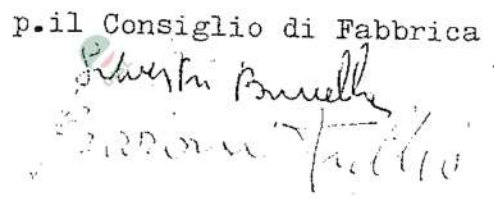 p.il Consiglio di Fabbrica
Silvestri Brunello
Tullio